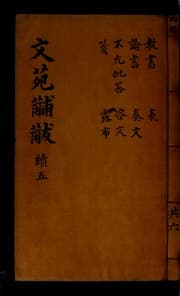 教書 表
諭書 奏文
不允批答 咨文
箋 露布
文苑黼黻 續五
共六